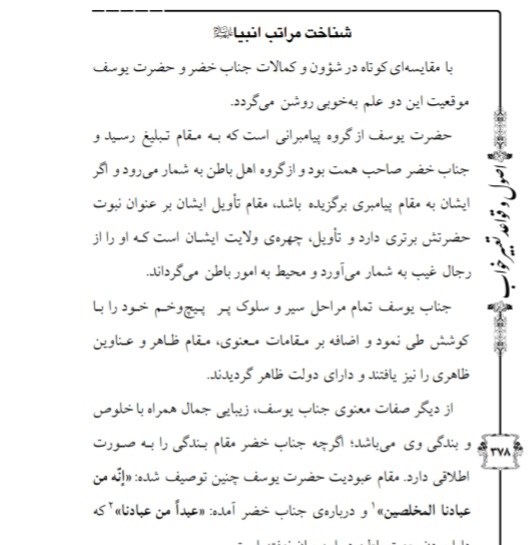 شناخت مراتب انبیا
با مقایسه‌ای کوتاه در شؤون و کمالات جناب خضر و حضرت یوسف
موقعیت این دو علم به‌خوبی روشن می‌گردد.
حضرت یوسف از گروه پیامبرانی است که به مقام تبلیغ رسید و
جناب خضر صاحب همت بود و از گروه اهل باطن به شمار می‌رود و اگر
ایشان به مقام پیامبری برگزیده باشد، مقام تأویل ایشان بر عنوان نبوت
حضرتش برتری دارد و تأویل، چهره‌ی ولایت ایشان است که او را از
رجال غیب به شمار می‌آورد و محیط به امور باطن می‌گرداند.
جناب یوسف تمام مراحل سیر و سلوک پر پیچ‌وخم خود را با
کوشش طی نمود و اضافه بر مقامات معنوی، مقام ظاهر و عناوین
ظاهری را نیز یافتند و دارای دولت ظاهر گردیدند.
از دیگر صفات معنوی جناب یوسف، زیبایی جمال همراه با خلوص
و بندگی وی می‌باشد؛ اگرچه جناب خضر مقام بندگی را به صورت
اطلاقی دارد. مقام عبودیت حضرت یوسف چنین توصیف شده: «إنّه من
عبادنا المخلصین»۱ و درباره‌ی جناب خضر آمده: «عبداً من عبادنا»۲ که
اصول و قواعد تعبیر خواب
۳۷۸